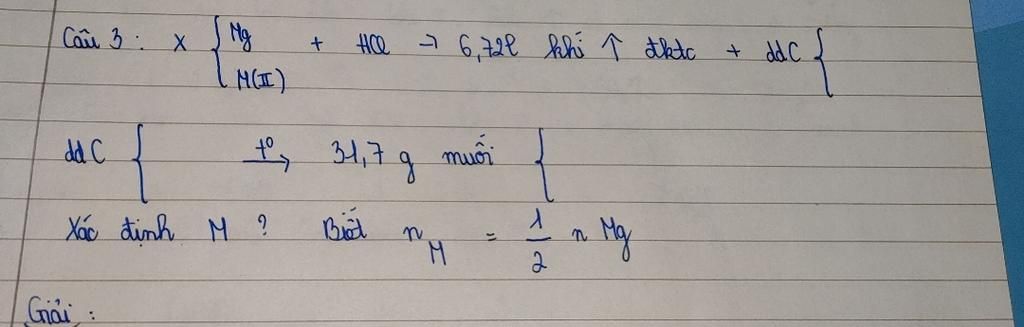 Câu 3 : X { Mg + HCl → 6,72l khí ↑ đktc + ddC {
M(II)
ddC { t° → 31,7 g muối {
Xác định M ? Biết n_M = 1/2 n Mg
Giải :